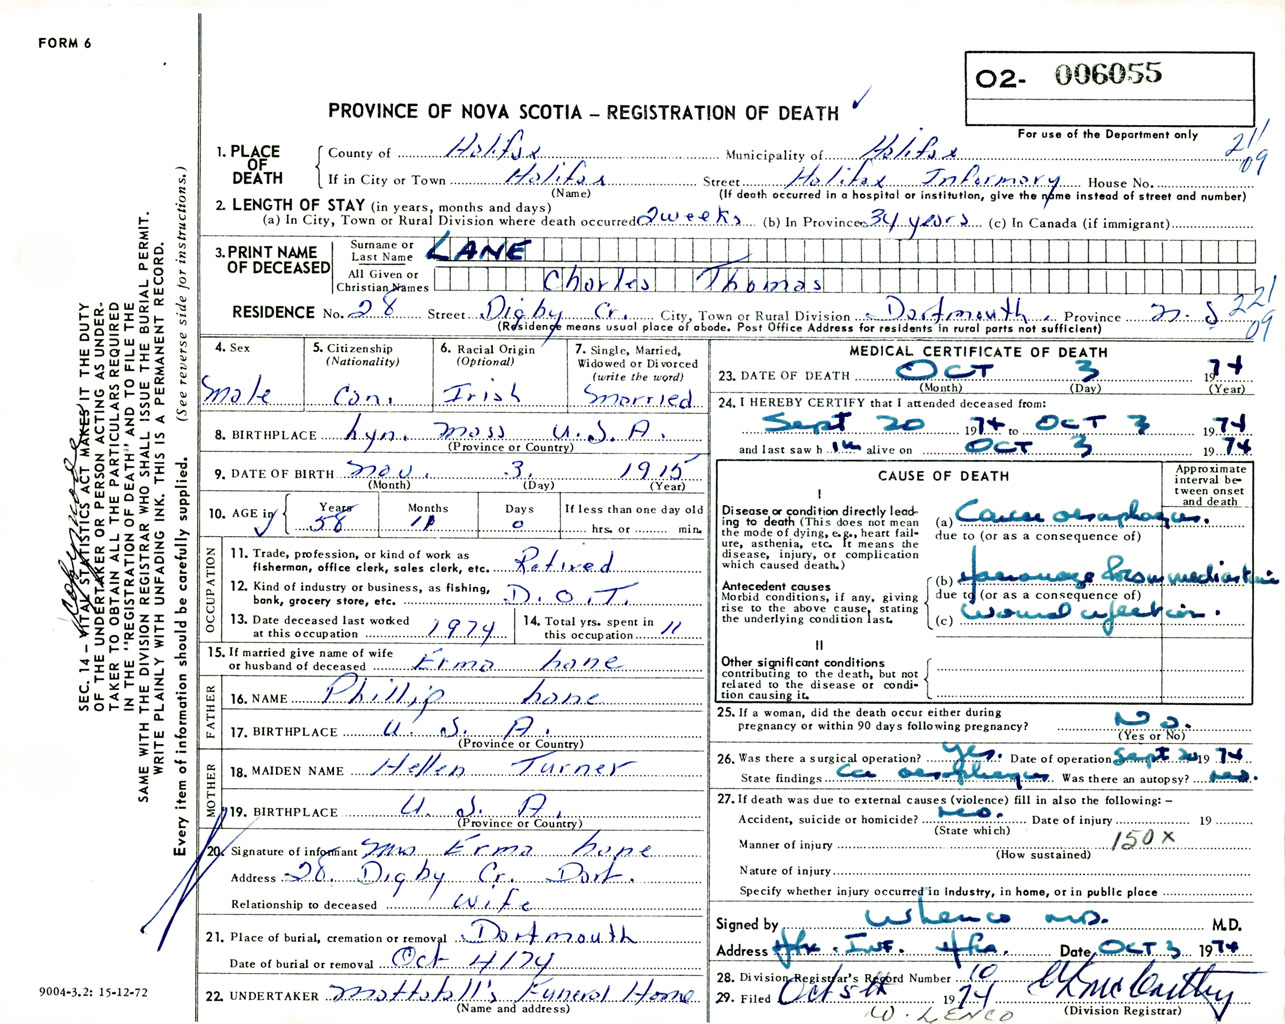 FORM 6
02- 006055
For use of the Department only
PROVINCE OF NOVA SCOTIA – REGISTRATION OF DEATH
1. PLACE OF DEATH
County of Halifax Municipality of Halifax
21/09
If in City or Town Halifax Street Halifax Infirmary House No.
(Name) (If death occurred in a hospital or institution, give the name instead of street and number)
2. LENGTH OF STAY (in years, months and days)
(a) In City, Town or Rural Division where death occurred 2 weeks (b) In Province 34 years (c) In Canada (if immigrant)
3. PRINT NAME OF DECEASED
Surname or Last Name LANE
All Given or Christian Names Charles Thomas
RESIDENCE No. 28 Street Digby Cr. City, Town or Rural Division Dartmouth. Province N. S
221/09
(Residence means usual place of abode. Post Office Address for residents in rural parts not sufficient)
4. Sex
Male
5. Citizenship
(Nationality)
Can.
6. Racial Origin
(Optional)
Irish
7. Single, Married,
Widowed or Divorced
(write the word)
Married
8. BIRTHPLACE Lyn. Mass U.S.A.
(Province or Country)
9. DATE OF BIRTH Nov. 3. 1915
(Month) (Day) (Year)
10. AGE in
Years Months Days If less than one day old
58 11 0 hrs. or min.
OCCUPATION
11. Trade, profession, or kind of work as
fisherman, office clerk, sales clerk, etc. Retired
12. Kind of industry or business, as fishing,
bank, grocery store, etc. D.O.T.
13. Date deceased last worked
at this occupation 1974
14. Total yrs. spent in
this occupation 11
15. If married give name of wife
or husband of deceased Erma Lane
FATHER
16. NAME Phillip Lane
17. BIRTHPLACE U. S. A.
(Province or Country)
MOTHER
18. MAIDEN NAME Hellen Turner
19. BIRTHPLACE U. S. A.
(Province or Country)
20. Signature of informant Mrs Erma Lane
Address 28 Digby Cr. Dart.
Relationship to deceased Wife
21. Place of burial, cremation or removal Dartmouth
Date of burial or removal Oct 4/74
22. UNDERTAKER Mattatall's Funeral Home
(Name and address)
MEDICAL CERTIFICATE OF DEATH
23. DATE OF DEATH OCT 3 1974
(Month) (Day) (Year)
24. I HEREBY CERTIFY that I attended deceased from:
Sept 20 1974 to OCT 3 1974
and last saw him alive on OCT 3 1974
CAUSE OF DEATH
Approximate
interval be-
tween onset
and death
I
Disease or condition directly lead-
ing to death (This does not mean
the mode of dying, e.g., heart fail-
ure, asthenia, etc. It means the
disease, injury, or complication
which caused death.)
(a) Cancer oesophagus.
due to (or as a consequence of)
Antecedent causes
Morbid conditions, if any, giving
rise to the above cause, stating
the underlying condition last.
(b) Haemorrhage from mediastinum
due to (or as a consequence of)
(c) Wound infection.
II
Other significant conditions
contributing to the death, but not
related to the disease or condi-
tion causing it.
25. If a woman, did the death occur either during
pregnancy or within 90 days following pregnancy? No.
(Yes or No)
26. Was there a surgical operation? Yes. Date of operation Sept 20 1974
State findings Ca oesophagus Was there an autopsy? No.
27. If death was due to external causes (violence) fill in also the following: –
Accident, suicide or homicide? No. Date of injury 19
(State which)
Manner of injury 150X
(How sustained)
Nature of injury
Specify whether injury occurred in Industry, in home, or in public place
Signed by W Lenco MD. M.D.
Address Hfx. Inf. Hfx. Date OCT 3 1974
28. Division Registrar's Record Number 10
29. Filed Oct 5th 1974
W. LENCO
(Division Registrar)
SEC. 14 – VITAL STATISTICS ACT MAKES IT THE DUTY
OF THE UNDERTAKER OR PERSON ACTING AS UNDER-
TAKER TO OBTAIN ALL THE PARTICULARS REQUIRED
IN THE "REGISTRATION OF DEATH" AND TO FILE THE
SAME WITH THE DIVISION REGISTRAR WHO SHALL ISSUE THE BURIAL PERMIT.
WRITE PLAINLY WITH UNFADING INK. THIS IS A PERMANENT RECORD.
Every item of information should be carefully supplied. (See reverse side for instructions.)
9004-3.2: 15-12-72